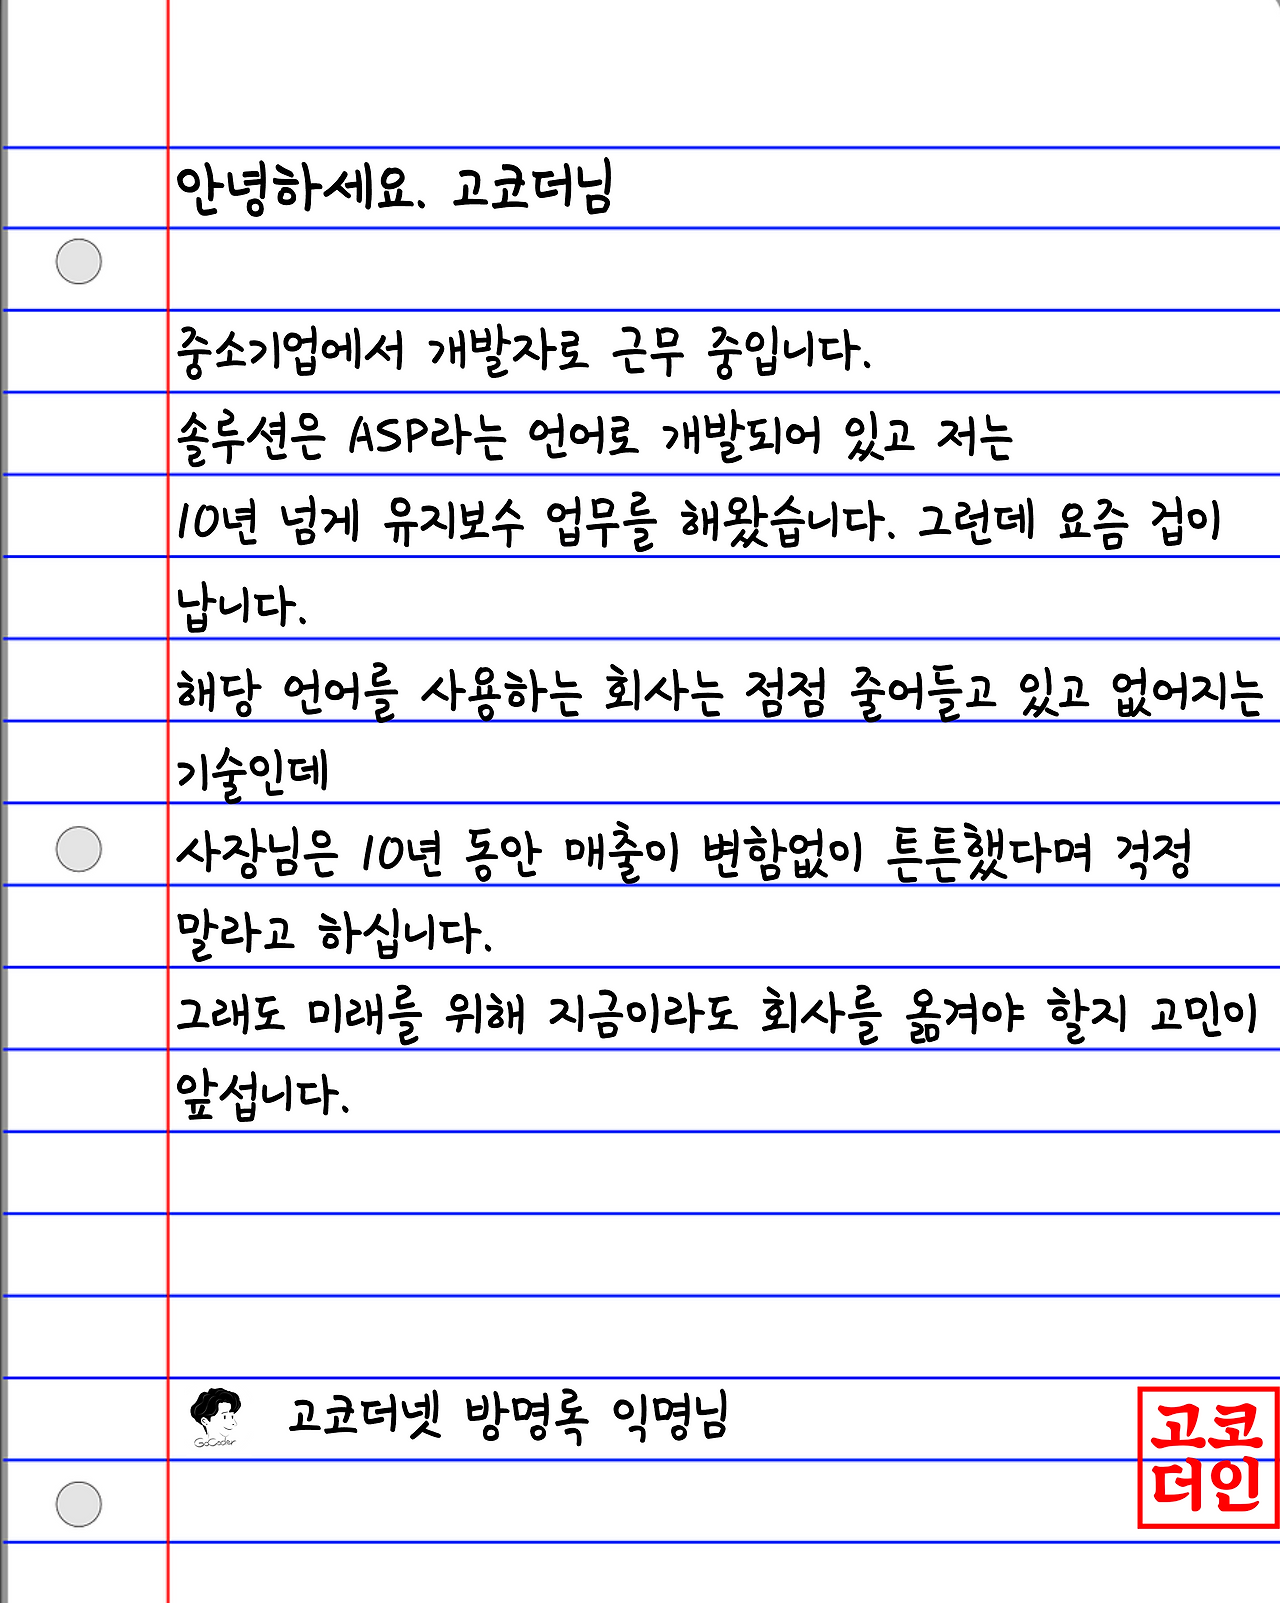 안녕하세요. 고코더님
중소기업에서 개발자로 근무 중입니다.
솔루션은 ASP라는 언어로 개발되어 있고 저는
10년 넘게 유지보수 업무를 해왔습니다. 그런데 요즘 겁이
납니다.
해당 언어를 사용하는 회사는 점점 줄어들고 있고 없어지는
기술인데
사장님은 10년 동안 매출이 변함없이 튼튼했다며 걱정
말라고 하십니다.
그래도 미래를 위해 지금이라도 회사를 옮겨야 할지 고민이
앞섭니다.
GoCoder
고코더넷 방명록 익명님
고코
더인